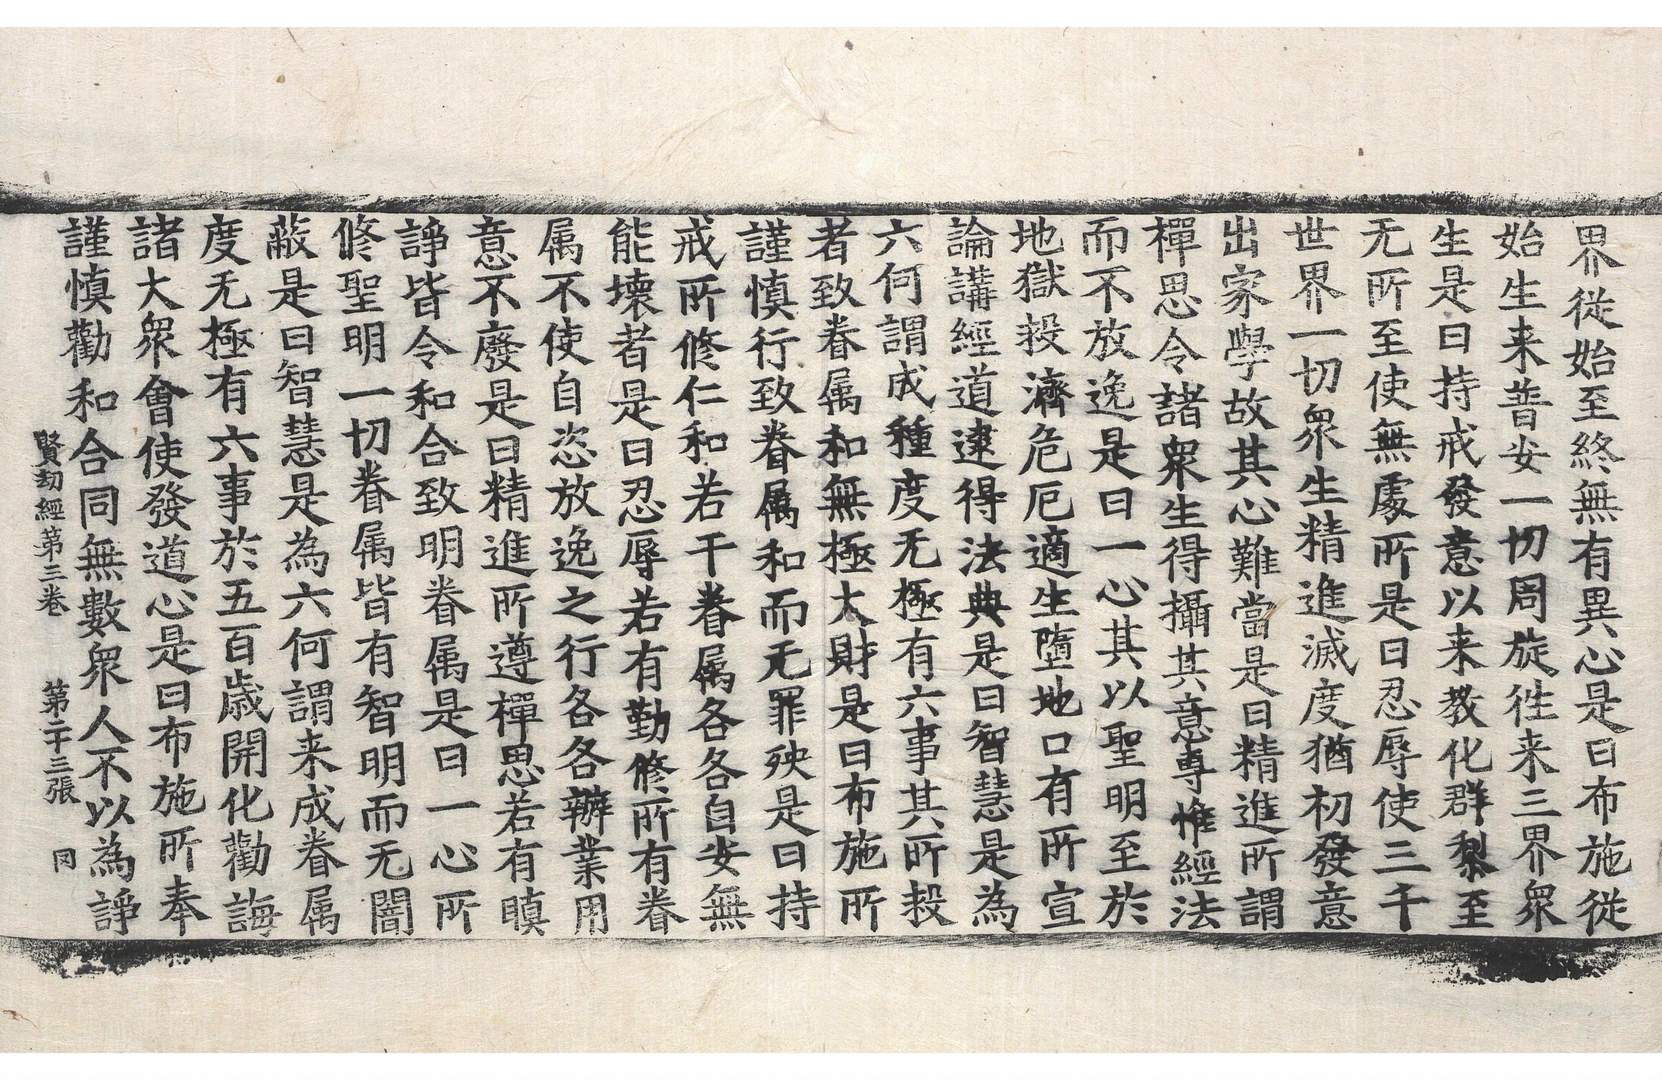 界從始至終無有異心是曰布施從
始生来普安一切周旋徃来三界衆
生是曰持戒發意以来教化群黎至
无所至使無處所是曰忍辱使三千
世界一切衆生精進滅度猶初發意
出家學故其心難當是曰精進所謂
禪思令諸衆生得攝其意專惟經法
而不放逸是曰一心其以聖明至於
地獄投濟危厄適生墮地口有所宣
論講經道逮得法典是曰智慧是為
六何謂成種度无極有六事其所投
者致眷属和無極大財是曰布施所
謹慎行致眷属和而无罪殃是曰持
戒所修仁和若干眷属各各自安無
能壞者是曰忍辱若有勤修所有眷
属不使自恣放逸之行各各辦業用
意不廢是曰精進所遵禪思若有瞋
諍皆令和合致明眷属是曰一心所
修聖明一切眷属皆有智明而无闇
蔽是曰智慧是為六何謂来成眷属
度无極有六事於五百歲開化勸誨
諸大衆會使發道心是曰布施所奉
謹慎勸和合同無數衆人不以為諍
賢劫經第三卷 第二十三張 冈